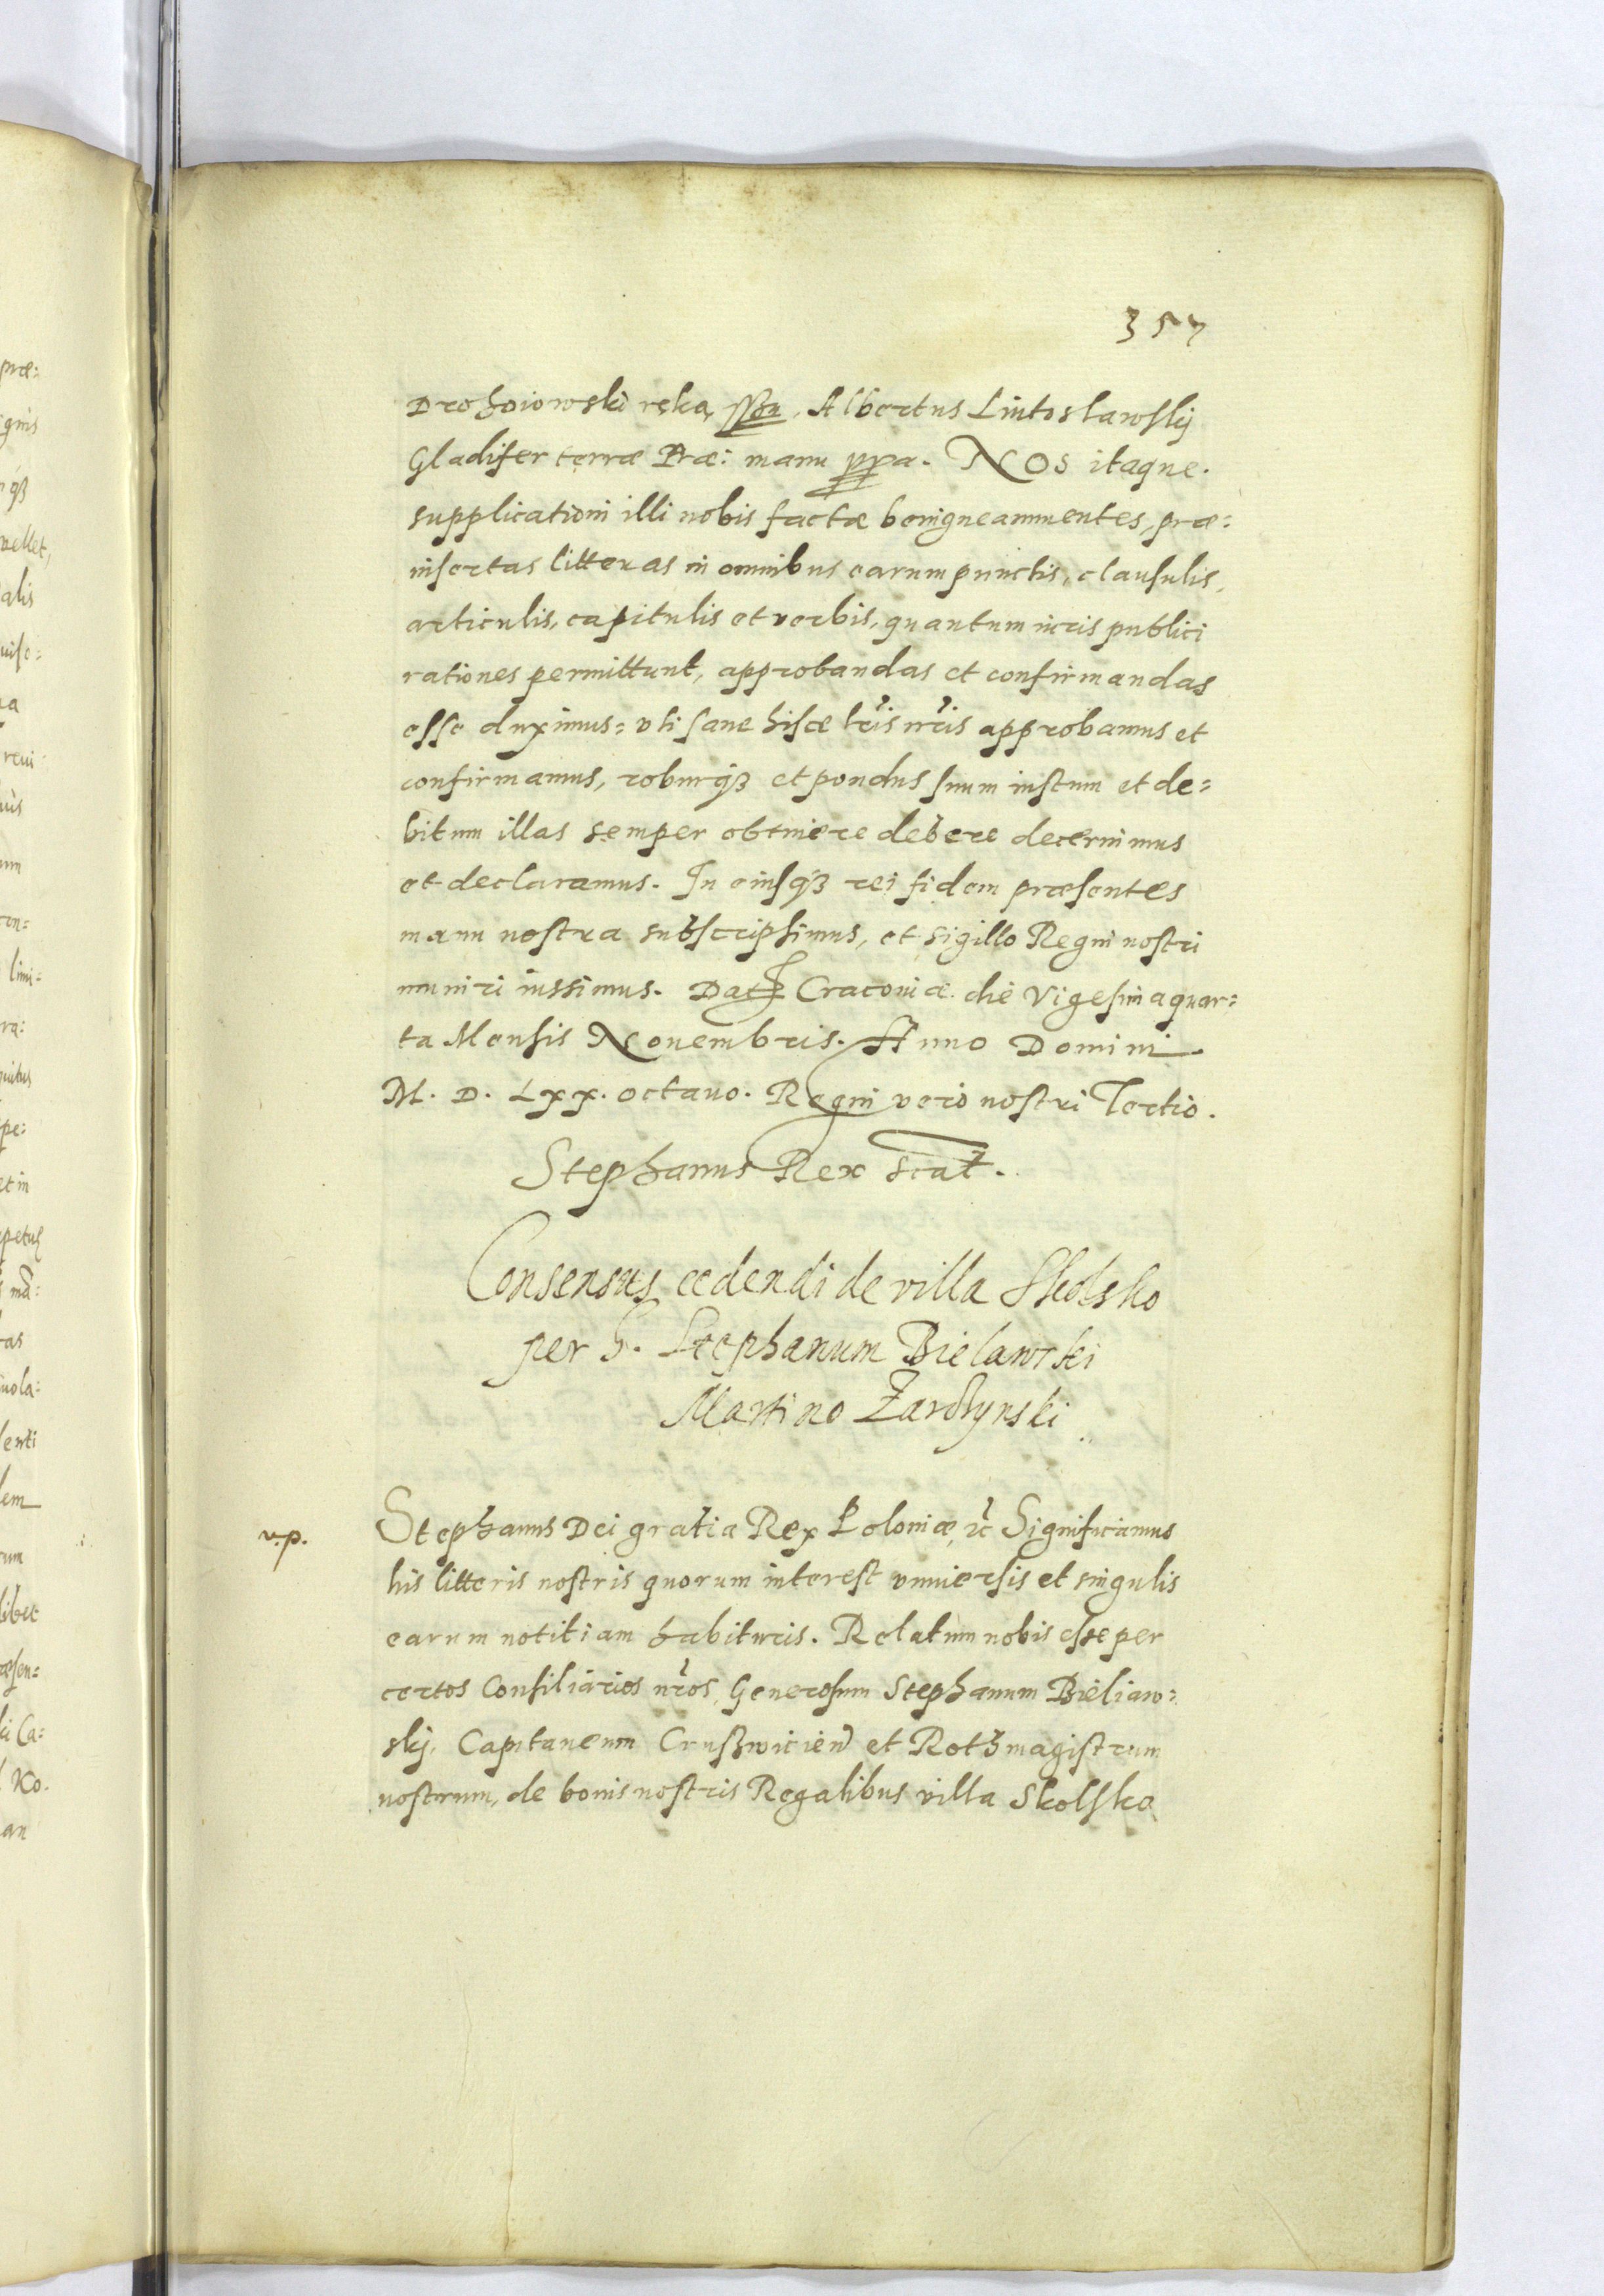 357
Drohoiowski ręką ssa. Albertus Lintoslawsky
Gladifer terræ Præ: manu ppa. NOS itaque.
supplicationi illi nobis factæ benigne annuentes, præ:
insertas litteras in omnibus earum punctis, clausulis,
articulis, capitulis et verbis, quantum iuris publici
rationes permittunt, approbandas et confirmandas
esse duximus: vti sane hisce lr̃is nr̃is approbamus et
confirmamus, roburq3 et pondus suum iustum et de:
bitum illas semper obtinere debere decernimus
et declaramus. In eiusq3 rei fidem præsentes
manu nostra subscripsimus, et sigillo Regni nostri
muniri iussimus. Dat Cracoviæ. die Vigesima quar:
ta Mensis Nouembris. Anno Domini.
M. D. Lxx. octauo. Regni vero nostri Tertio.
Stephanus Rex scat̃.
Consensus cedendi de villa Skolsko
per G. Stephanum Bielawski
Martino Zardzynski
v.p.
Stephanus Dei gratia Rex Poloniæ, ꝛc̃ Significamus
his litteris nostris quorum interest vniuersis et singulis
earum notitiam habituris. Relatum nobis esse per
certos Consiliarios nr̃os, Generosum Stephanum Bieliaw:
sky, Capitaneum Cruszwicien̄ et Rothmagistrum
nostrum, de bonis nostris Regalibus villa Skolsko